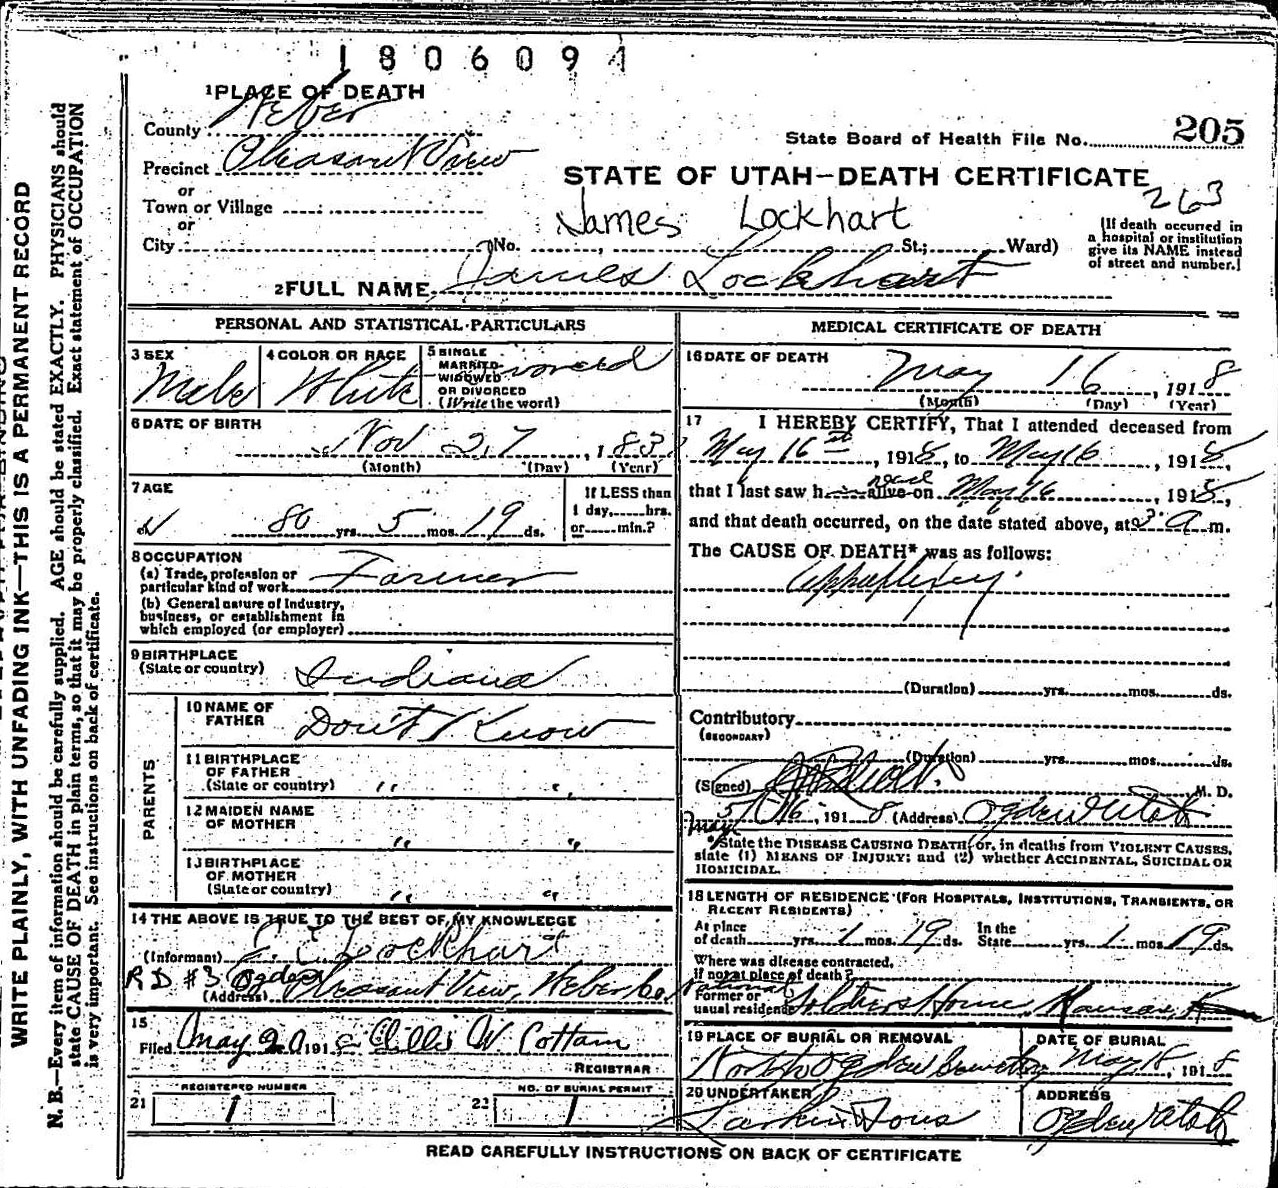 1806094
1 PLACE OF DEATH
County Weber
State Board of Health File No. 205
Precinct Pleasant View
STATE OF UTAH—DEATH CERTIFICATE
263
or
Town or Village
or
James Lockhart
City No. St.; Ward)
(If death occurred in a hospital or institution give its NAME instead of street and number.)
2 FULL NAME James Lockhart
PERSONAL AND STATISTICAL PARTICULARS
3 SEX Male
4 COLOR OR RACE White
5 SINGLE MARRIED WIDOWED OR DIVORCED (Write the word)
6 DATE OF BIRTH
Nov 27, 183
(Month) (Day) (Year)
7 AGE
80 yrs. 5 mos. 19 ds.
If LESS than 1 day, hrs. or min.?
8 OCCUPATION
(a) Trade, profession or particular kind of work Farmer
(b) General nature of Industry, business, or establishment in which employed (or employer)
9 BIRTHPLACE
(State or country) Indiana
PARENTS
10 NAME OF FATHER Don't Know
11 BIRTHPLACE OF FATHER (State or country) " "
12 MAIDEN NAME OF MOTHER " "
13 BIRTHPLACE OF MOTHER (State or country) " "
14 THE ABOVE IS TRUE TO THE BEST OF MY KNOWLEDGE
(Informant) Lockhart
RD #3 Ogden
(Address) Pleasant View, Weber Co.
15
Filed May 20 191 W Cottam
REGISTRAR
REGISTERED NUMBER
21 1
NO. OF BURIAL PERMIT
22 1
MEDICAL CERTIFICATE OF DEATH
16 DATE OF DEATH
May 16, 1918
(Month) (Day) (Year)
17 I HEREBY CERTIFY, That I attended deceased from
May 16, 1918, to May 16, 1918,
that I last saw h alive on May 16, 1918,
and that death occurred, on the date stated above, at 3 a m.
The CAUSE OF DEATH* was as follows:
(Duration) yrs. mos. ds.
Contributory
(SECONDARY)
(Duration) yrs. mos. ds.
(Signed) M. D.
May 16, 1918 (Address) Ogden Utah
*State the DISEASE CAUSING DEATH, or, in deaths from VIOLENT CAUSES, state (1) MEANS OF INJURY; and (2) whether ACCIDENTAL, SUICIDAL OR HOMICIDAL.
18 LENGTH OF RESIDENCE (FOR HOSPITALS, INSTITUTIONS, TRANSIENTS, OR RECENT RESIDENTS)
At place of death yrs. 1 mos. 19 ds. In the State yrs. 1 mos. 19 ds.
Where was disease contracted, if not at place of death?
Former or usual residence National Soldiers Home Kansas
19 PLACE OF BURIAL OR REMOVAL
North Ogden Cemetery
DATE OF BURIAL
May 18, 1918
20 UNDERTAKER
Larkin Sons
ADDRESS
Ogden Utah
READ CAREFULLY INSTRUCTIONS ON BACK OF CERTIFICATE
WRITE PLAINLY, WITH UNFADING INK—THIS IS A PERMANENT RECORD
N. B.—Every item of information should be carefully supplied. AGE should be stated EXACTLY. PHYSICIANS should
state CAUSE OF DEATH in plain terms, so that it may be properly classified. Exact statement of OCCUPATION
is very important. See instructions on back of certificate.